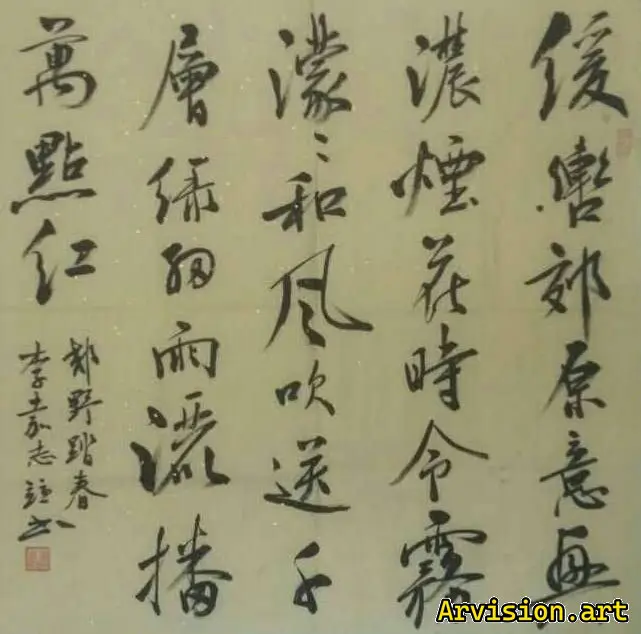 緩轡郊原意興
濃煙花時令霧
濛〻和風吹送千
層綠細雨灑播
萬點紅
野踏春
李嘉志書
Arvision.art